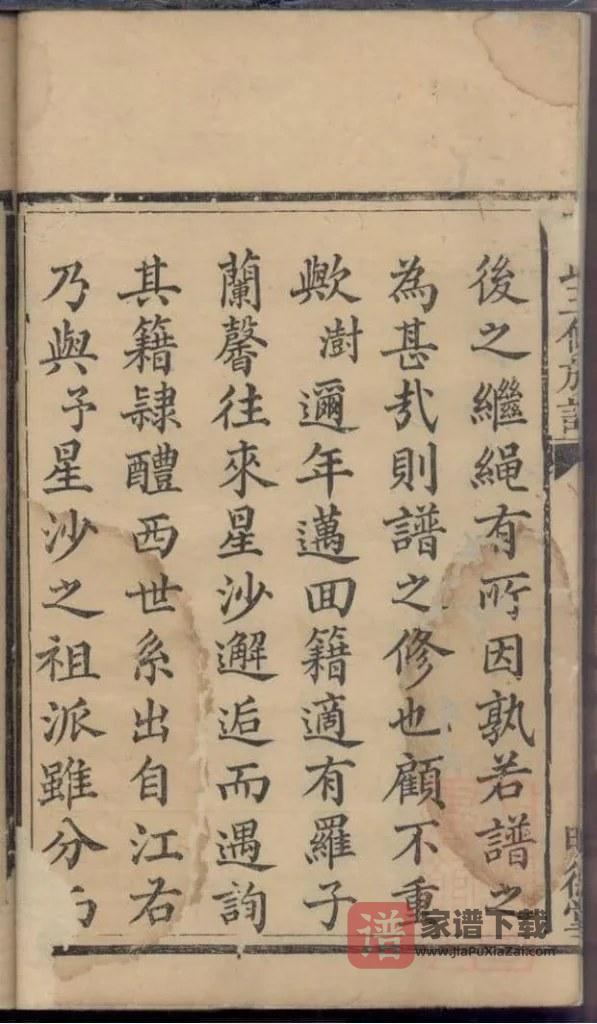 三修族譜
明德堂
後之繼繩有所因孰若譜之
為甚哉則譜之修也顧不重
歟澍邇年邁囬籍適有羅子
蘭馨往來星沙邂逅而遇詢
其籍隷醴西世系出自江右
乃與予星沙之祖派雖分
谱
家谱下载
www.JiaPuXiaZai.com